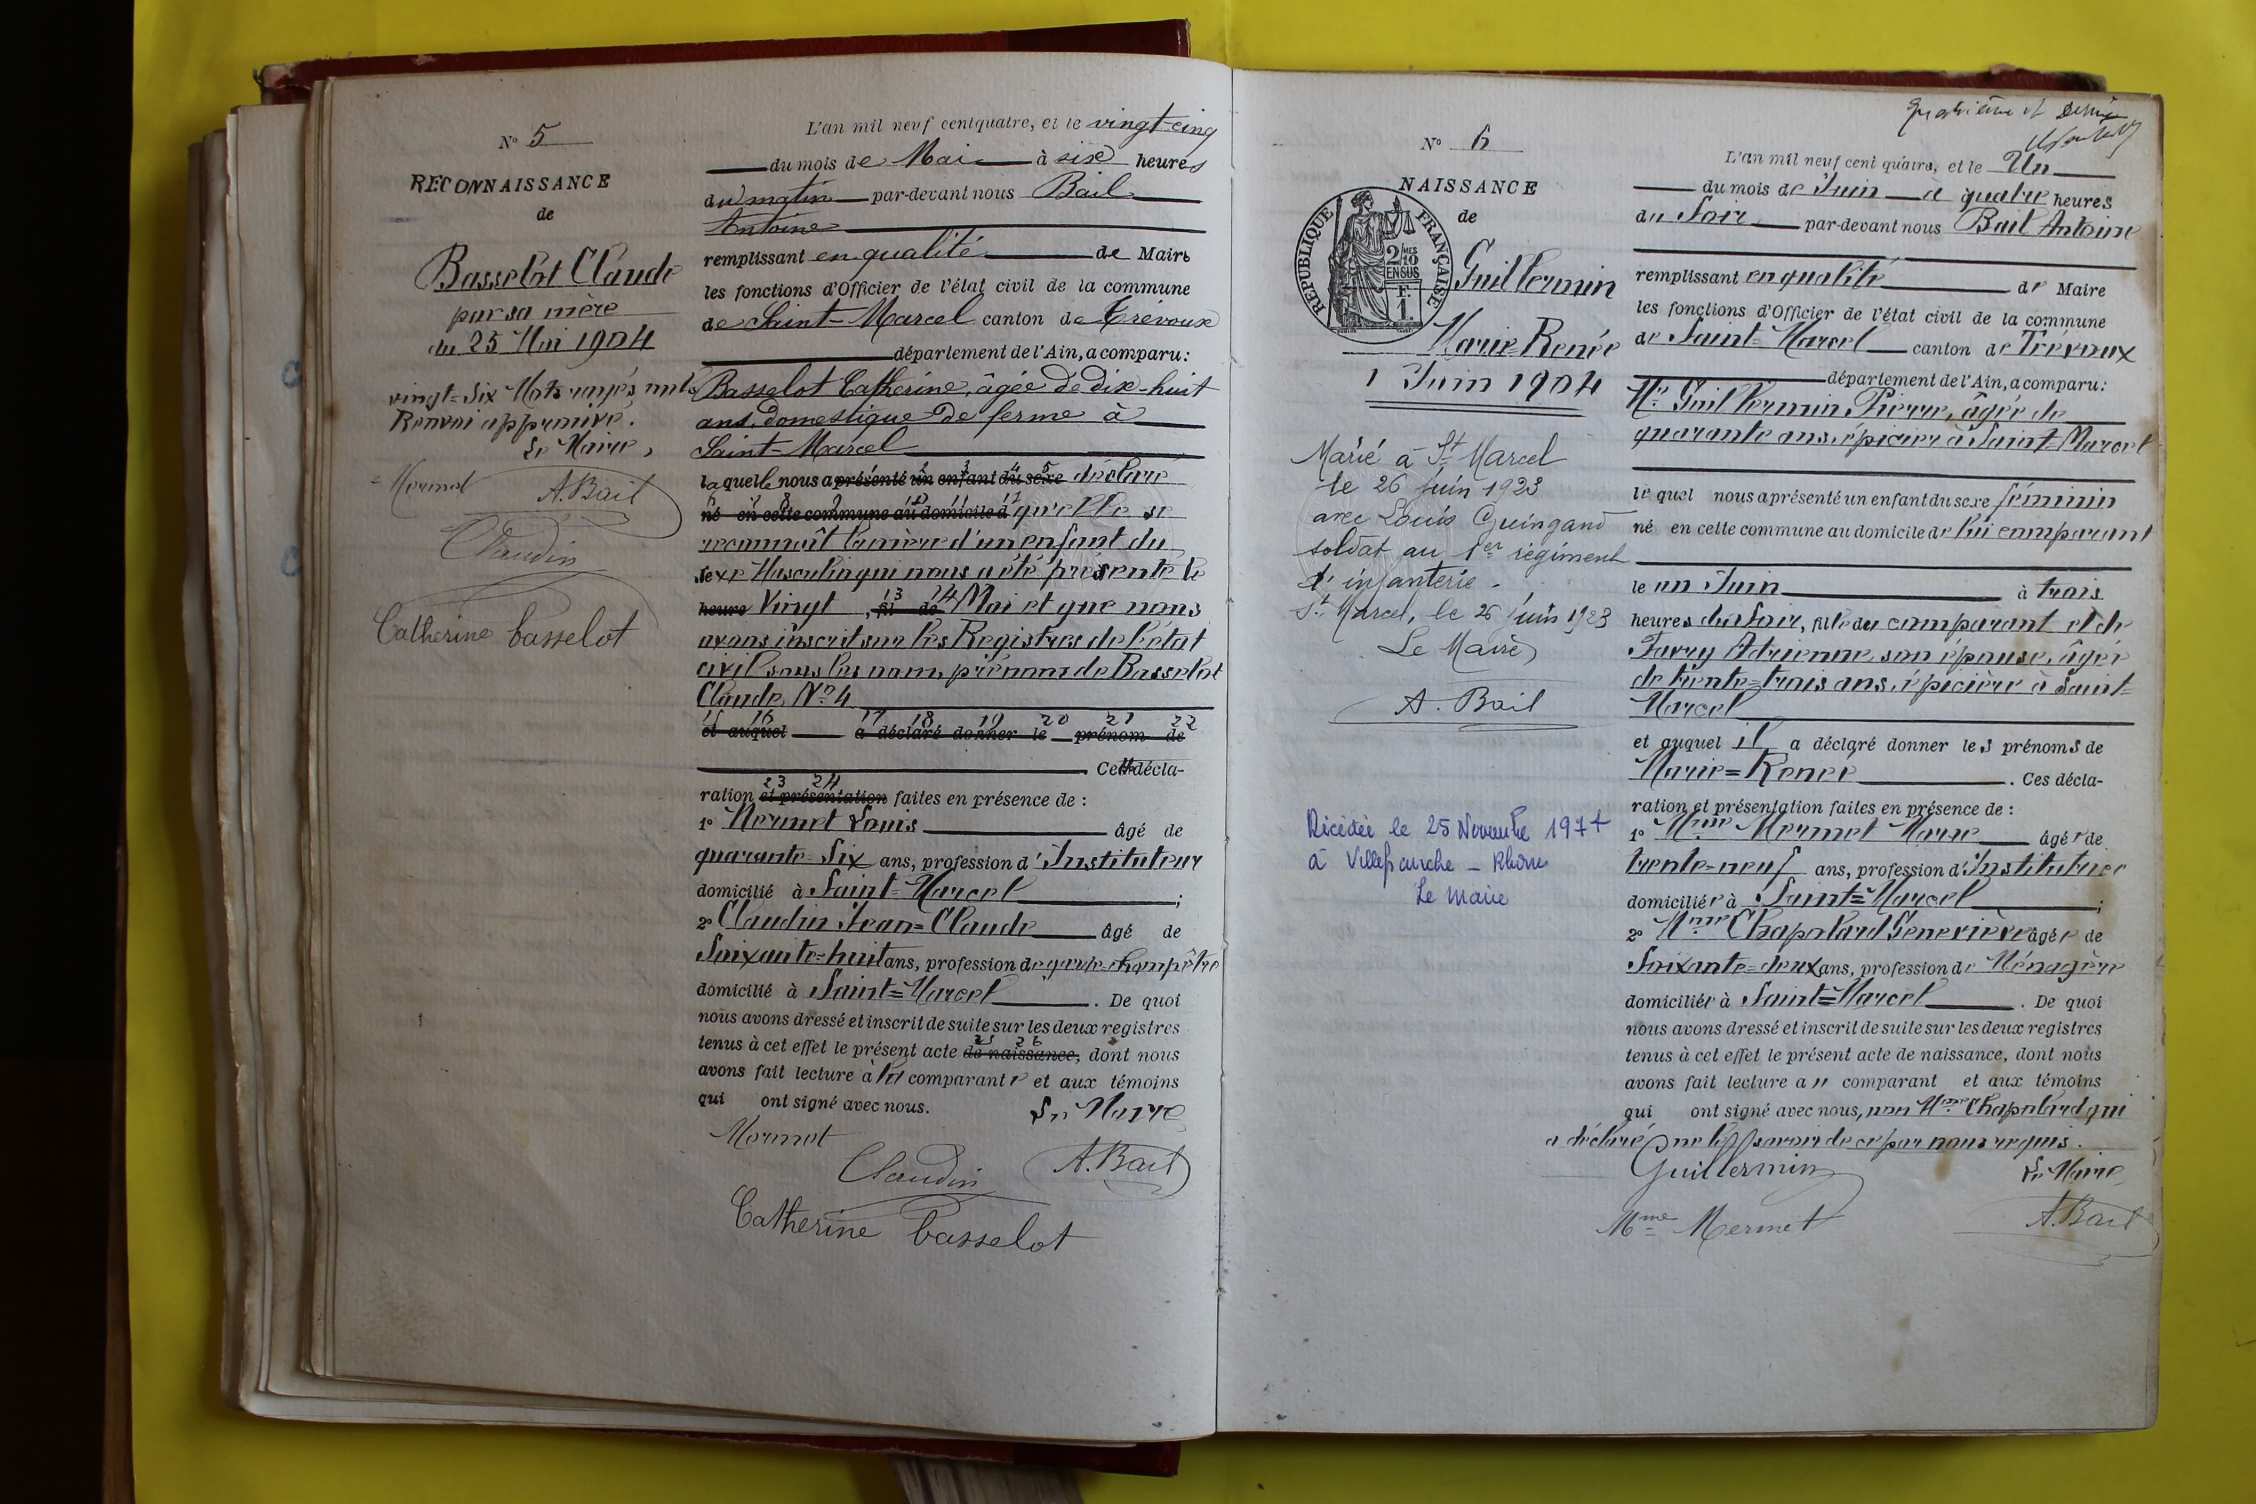 N° 5
RECONNAISSANCE
de
Basselot Claude
par sa mère
du 25 Mai 1904
vingt-six Mots rayés nuls
Renvoi approuvé.
Le Maire,
Mermet A. Bail
Claudin
Catherine basselot
L'an mil neuf cent quatre, et le vingt-cinq
du mois de Mai à six heures
du matin par-devant nous Bail
Antoine
remplissant en qualité de Maire
les fonctions d'Officier de l'état civil de la commune
de Saint-Marcel canton de Trévoux
département de l'Ain, a comparu:
Basselot Catherine, âgée de dix-huit
ans, domestique de ferme à
Saint-Marcel
laquelle nous a présenté un enfant du sexe déclaré
2 3 4 5
6 7 8 9 10 11 12
né en cette commune au domicile d qu'elle se
reconnaît la mère d'un enfant du
sexe Masculin qui nous a été présenté le
13 14
heure Vingt , fil de Mai et que nous
avons inscrit sur les Registres de l'état
civil sous les nom, prénom de Basselot
Claude N° 4
15 16 17 18 19 20 21 22
et auquel a déclaré donner le prénom de
Cette décla-
23 24
ration et présentation faites en présence de :
1° Mermet Louis âgé de
quarante-six ans, profession d'Instituteur
domicilié à Saint-Marcel ;
2° Claudin Jean-Claude âgé de
Soixante-huit ans, profession de garde-champêtre
domicilié à Saint-Marcel . De quoi
nous avons dressé et inscrit de suite sur les deux registres
25 26
tenus à cet effet le présent acte de naissance, dont nous
avons fait lecture à la comparante et aux témoins
qui ont signé avec nous. Le Maire
Mermet
Claudin A. Bail
Catherine basselot
Quatrième et dernier
N° 6
NAISSANCE
de
RÉPUBLIQUE FRANÇAISE
2/10 MES
EN SUS
F.
1.
Guillermin
Marie-Renée
1 Juin 1904
Marié à St Marcel
le 26 juin 1923
avec Louis Guingand
soldat au 1er régiment
d'infanterie.
St Marcel, le 26 juin 1923
Le Maire
A. Bail
Décédée le 25 Novembre 1974
à Villefranche - Rhône
Le Maire
L'an mil neuf cent quatre, et le Un
du mois de Juin à quatre heures
du Soir par-devant nous Bail Antoine
remplissant en qualité de Maire
les fonctions d'Officier de l'état civil de la commune
de Saint-Marcel canton de Trévoux
département de l'Ain, a comparu:
Mr Guillermin Pierre, âgé de
quarante ans, épicier à Saint-Marcel
lequel nous a présenté un enfant du sexe féminin
né en cette commune au domicile de lui comparant
le un Juin à trois
heures du soir, fille du comparant et de
Favry Adrienne son épouse, âgée
de trente-trois ans, épicière à Saint-
Marcel
et auquel il a déclaré donner les prénoms de
Marie-Renée . Ces décla-
ration et présentation faites en présence de :
1° Mme Mermet Marie âgée de
trente-neuf ans, profession d'Institutrice
domiciliée à Saint-Marcel ;
2° Mme Chapolard Geneviève âgée de
Soixante-deux ans, profession de Ménagère
domiciliée à Saint-Marcel . De quoi
nous avons dressé et inscrit de suite sur les deux registres
tenus à cet effet le présent acte de naissance, dont nous
avons fait lecture au comparant et aux témoins
qui ont signé avec nous, non Mme Chapolard qui
a déclaré ne le savoir de ce par nous requis.
Guillermin Le Maire
Mme Mermet A. Bail